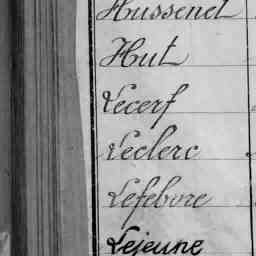 Hussenet
Hut
Lecerf
Leclerc
Lefebvre
Lejeune